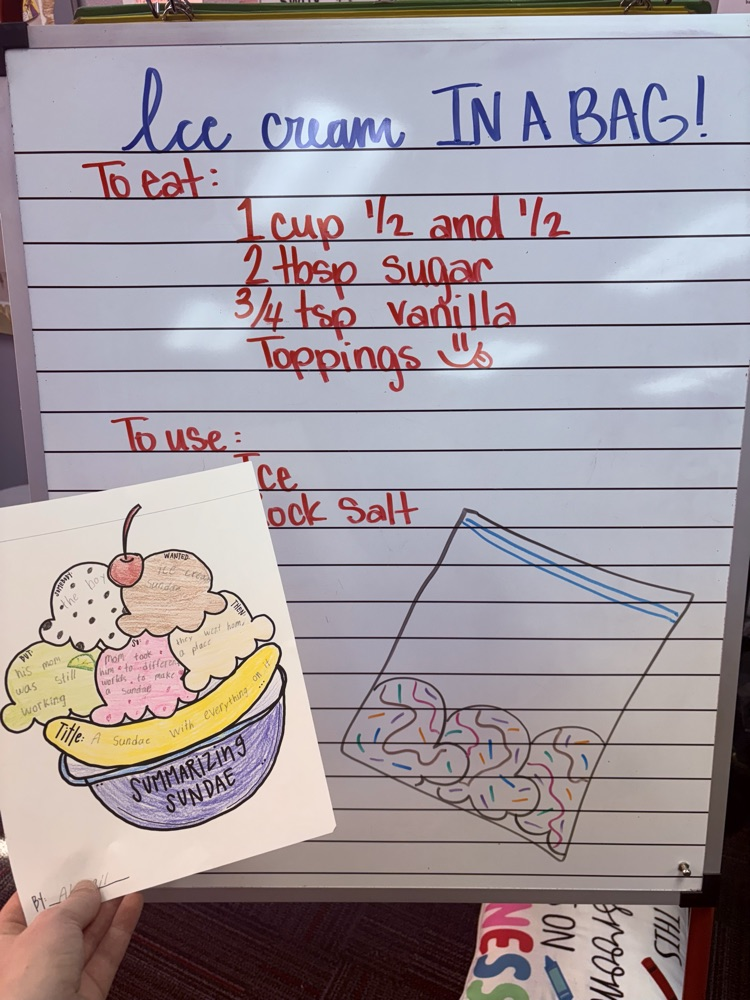 Ice cream IN A BAG!
To eat:
1 cup 1/2 and 1/2
2 tbsp sugar
3/4 tsp vanilla
Toppings
To use:
Ice
ock Salt
SOMEBODY:
the boy
WANTED:
ice cream
sundae
BUT:
his mom
was still
working
SO:
mom took
him to different
worlds to make
a sundae
THEN
they went home,
a place
Title: A Sundae with everything on it...
SUMMARIZING
SUNDAE
By:
NESS
NO
THIS